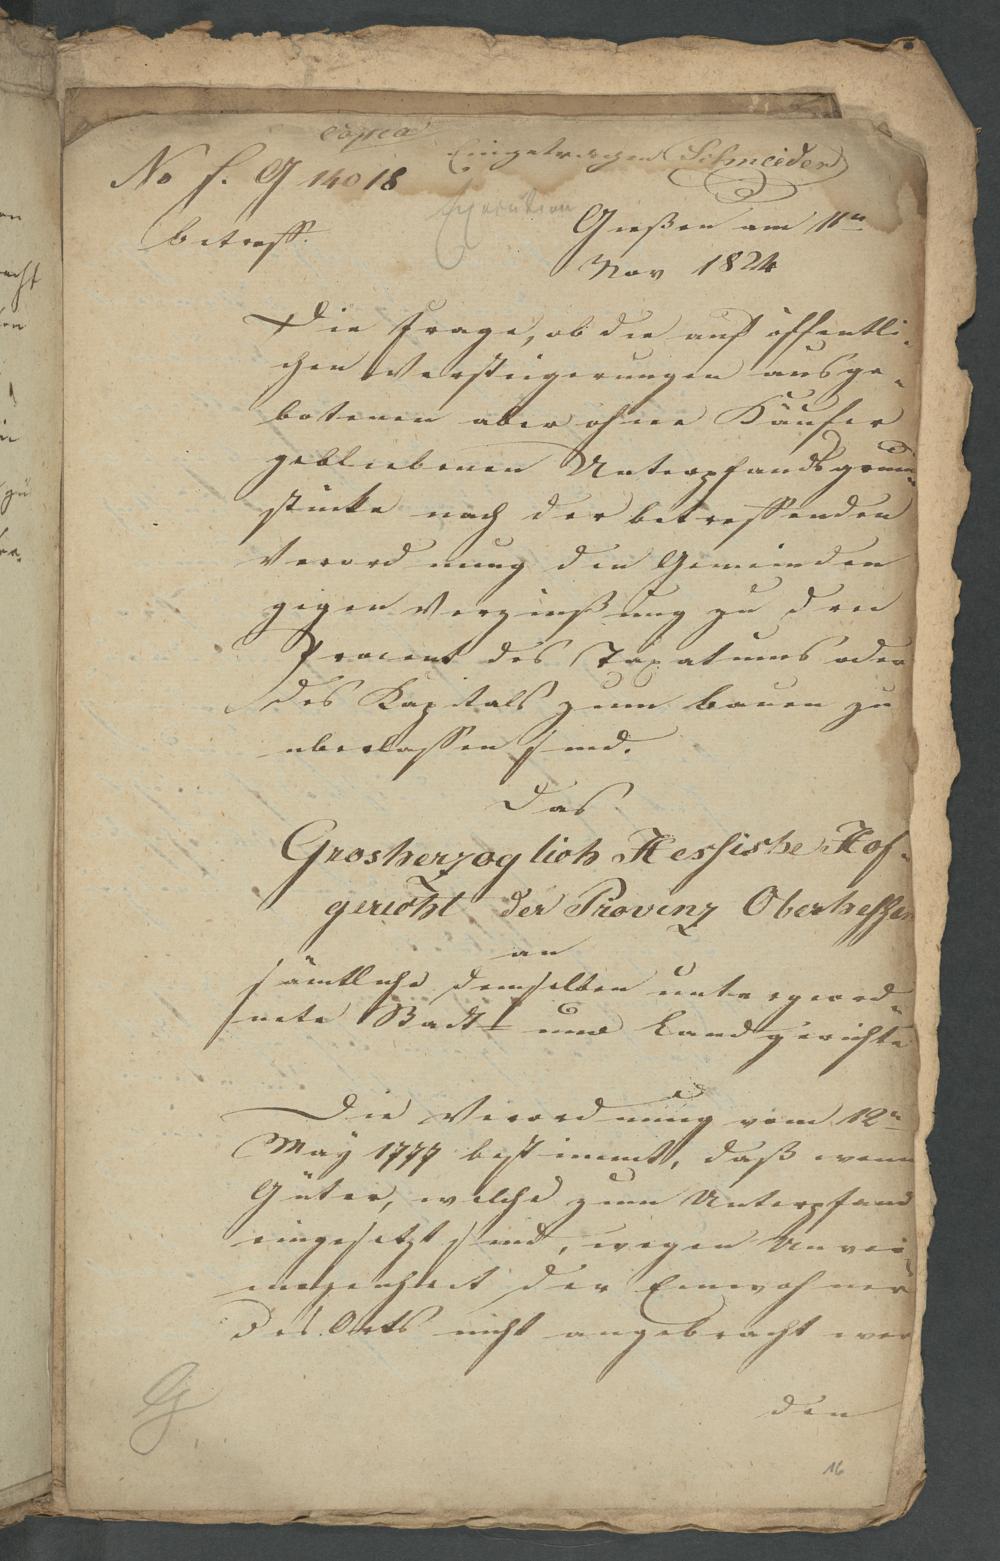 Copia
Eingetragen Schneider
No H. G 14018
Execution
Gießen am 11n
betreff.
Nov 1824
Die Frage, ob die auf öffentli-
chen Versteigerungen ausge-
botenen aber ohne Käufer
gebliebenen Unterpfandsgrund-
stücke nach der betreffenden
Verordnung den Gemeinden
gegen Verzinßung zu drei
Procent des Taxatums oder
des Kapitals zum bauen zu
überlassen sind.
Das
Grosherzoglich Hessische Hof-
gericht der Provinz Oberhessen
an
sämtliche demselben untergeord-
nete Stadt- und Landgerichte
Die Verordnung vom 12n
May 1777 bestimmt, daß wenn
Güter, welche zum Unterpfand
eingesetzt sind, wegen Unver-
mögenheit der Einwohner
des Orts nicht angebracht wer
den
G
16